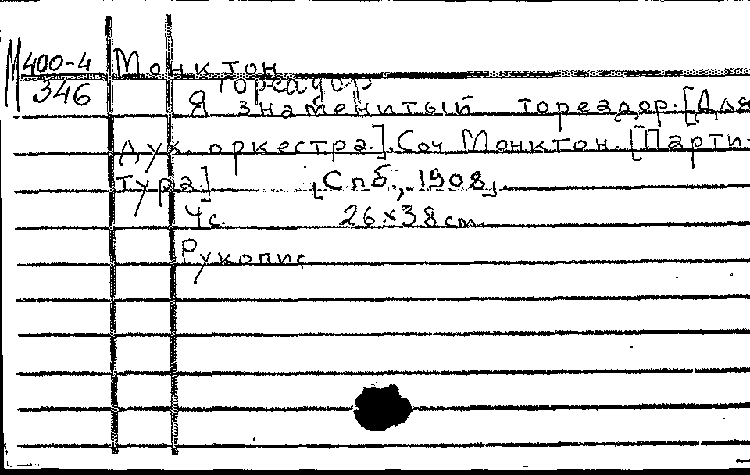 М400-4 Монктон
346 Тореадор
Я знаменитый тореадор. [Для
дух. оркестра.] Соч Монктон. [Парти-
тура] [Спб., 1908].
4с 26×38 см
Рукопис